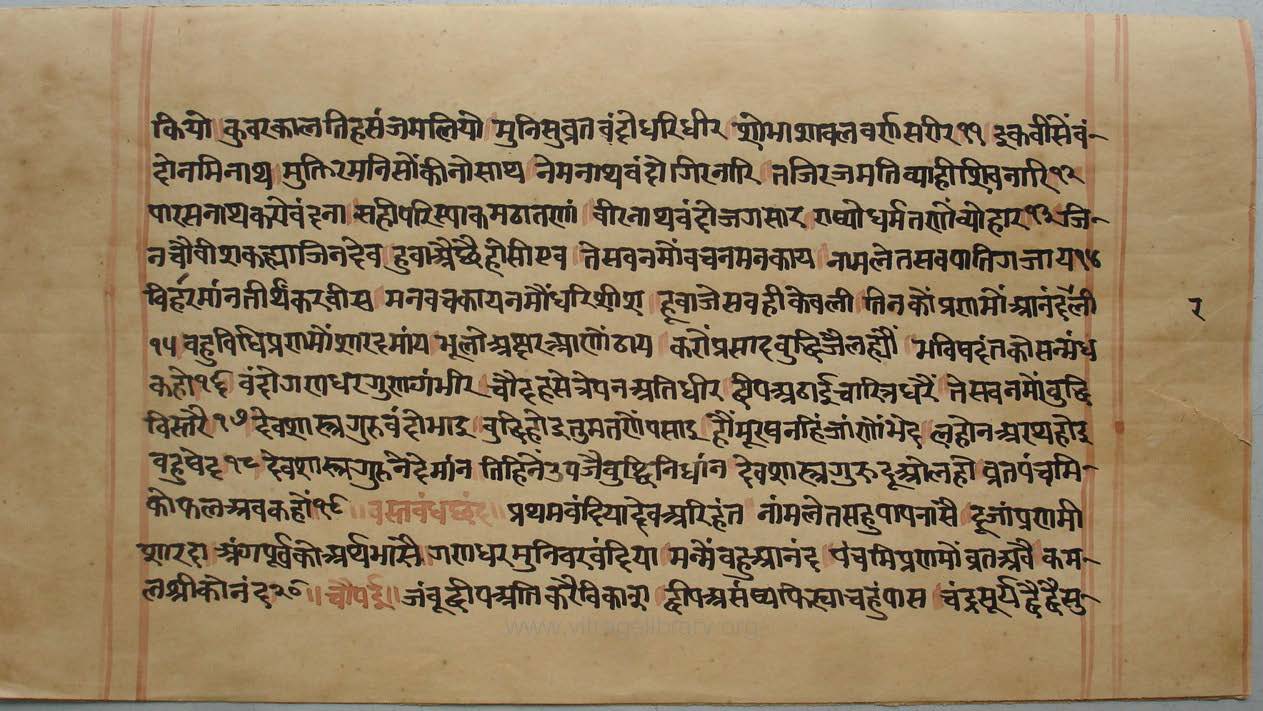 कियो कुवरकाल तिह संजमलियो मुनिसुव्रत वंदौ धरि धीर शोभा शावल वर्ण सरीर ११ इकवीसें वं-
दो नमिनाथ मुक्ति रमनिसों कीनो साथ नेमनाथ वंदो गिरनारि तजि रजमति व्याही शिवनारि १२
पारसनाथ करो वंदना सही परिस्या कमठातणां वीरनाथ वंदौ जगसार राष्यो धर्मतणों व्योहार १३ जि-
न चौवीश कह्या जिनदेव हुवा अैछै होसी एव ते सव नमौं वचन मन काय नाम लेत सव पातिग जाय १४
विहरमांन तीर्थंकर वीस मन वच काय नमौं धरि शीश हूवा जे सवही केवली तिनकौं प्रणमों आनंद रली
१५ वहु विधि प्रणमौं शारद माय भूलो अक्षर आणों ठाय करों प्रसाद वुद्धि जैलहौं भविषदंत को सन्मंध
कहो १६ वंदो गणधर गुणगंभीर चौदहसे त्रेपन अति धीर द्वीप अढाई चारित्र धरें ते सव नमों वुद्धि
विस्तरै १७ देव शास्त्र गुरु वंदो भाइ वुद्धि होइ तुम तणें पसाइ हौं मूरष नहिं जांणों भेद लहो न अरथ होइ
वहु षेद १८ देव शास्त्र गुरु नें दे मांन तिहिनें उपजै वुद्धि निधांन देव शास्त्र गुरु दूओ लहौ व्रत पंचमि-
को फल अव कहों १९ ॥ वस्तवंध छंद ॥ प्रथम वंदिया देव अरिहंत नांम लेत सहु पाप नासै दूजां प्रणमी
शारदा अंग पूर्व को अर्थ भासै गणधर मुनिवर वंदिया मन्मैं वहु आनंद पंचमि प्रणमों व्रत अवै कम-
लश्री को नंद २० ॥ चौपई ॥ जंवूद्वीप अति करै विकाश द्वीप असंष्य फिस्या चहुंपास चंद्र सूर्य द्वै द्वै सु-
२
www.vitragelibrary.org